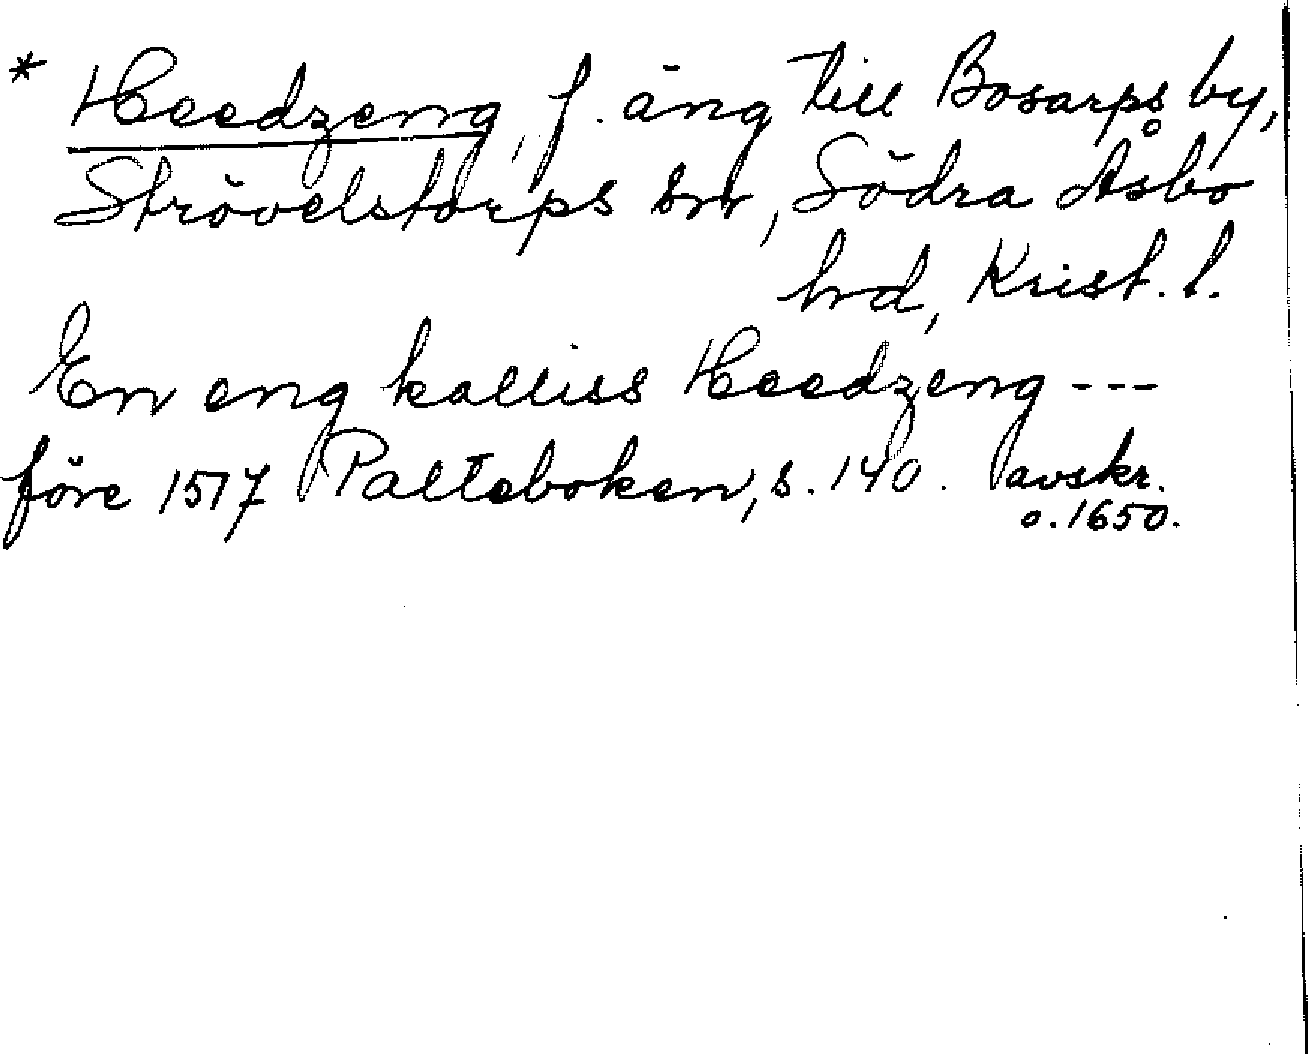 * Heedzeng, f. äng till Bosarps by,
Strövelstorps sn, Södra Åsbo
hd, Krist. l.
En eng kalliss Heedzeng ---
före 1517 Palteboken, s. 140. avskr.
o. 1650.